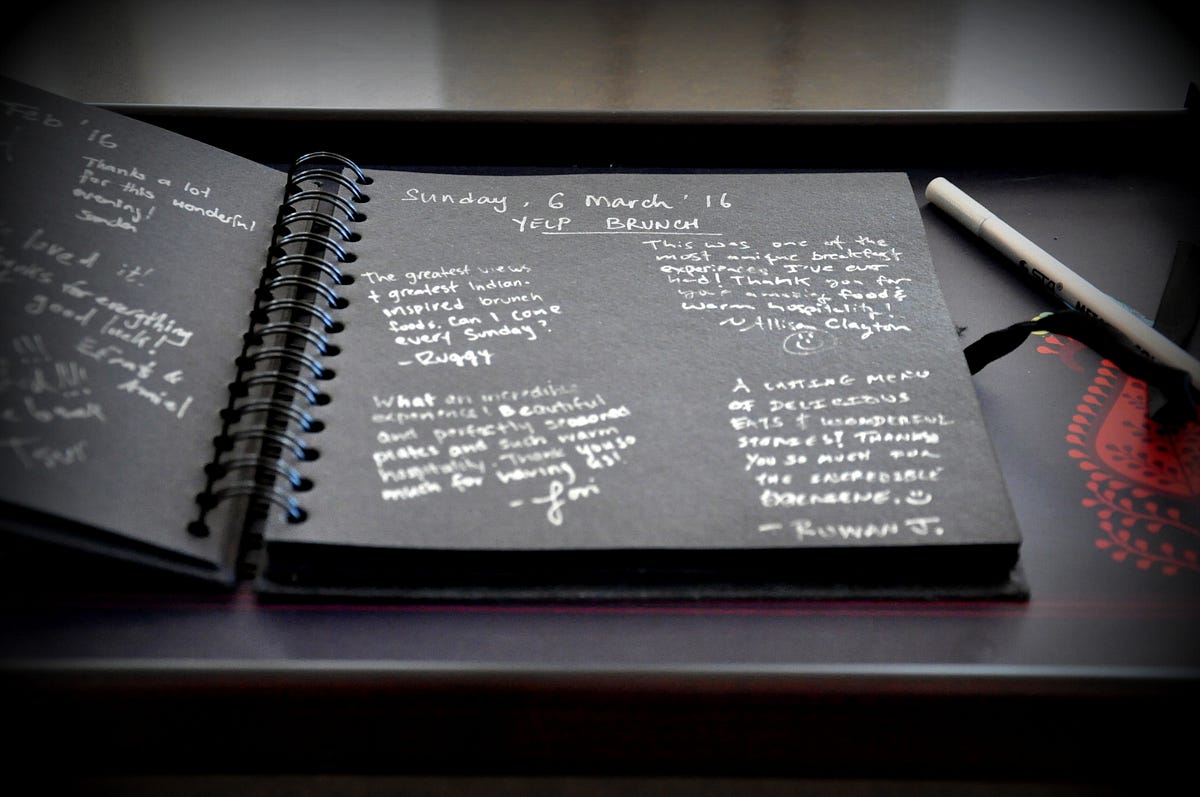 Feb '16
Thanks a lot
for this wonderful
evening!
loved it!
for everything
good luck!
Efrat &
Sunday, 6 March '16
YELP BRUNCH
The greatest views
+ greatest Indian-
inspired brunch
foods. Can I come
every Sunday?
- Ruggy
This was one of the
most unique breakfast
experiences I've ever
had! Thank you for
your amazing food &
warm hospitality!
~ Allison Clayton
What an incredible
experience! Beautiful
and perfectly seasoned
plates and such warm
hospitality. Thank you so
much for having us!
- Jori
A LASTING MENU
OF DELICIOUS
EATS & WONDERFUL
STORIES! THANKS
YOU SO MUCH FOR
THE INCREDIBLE
EXPERIENCE.
- RUWAN J.